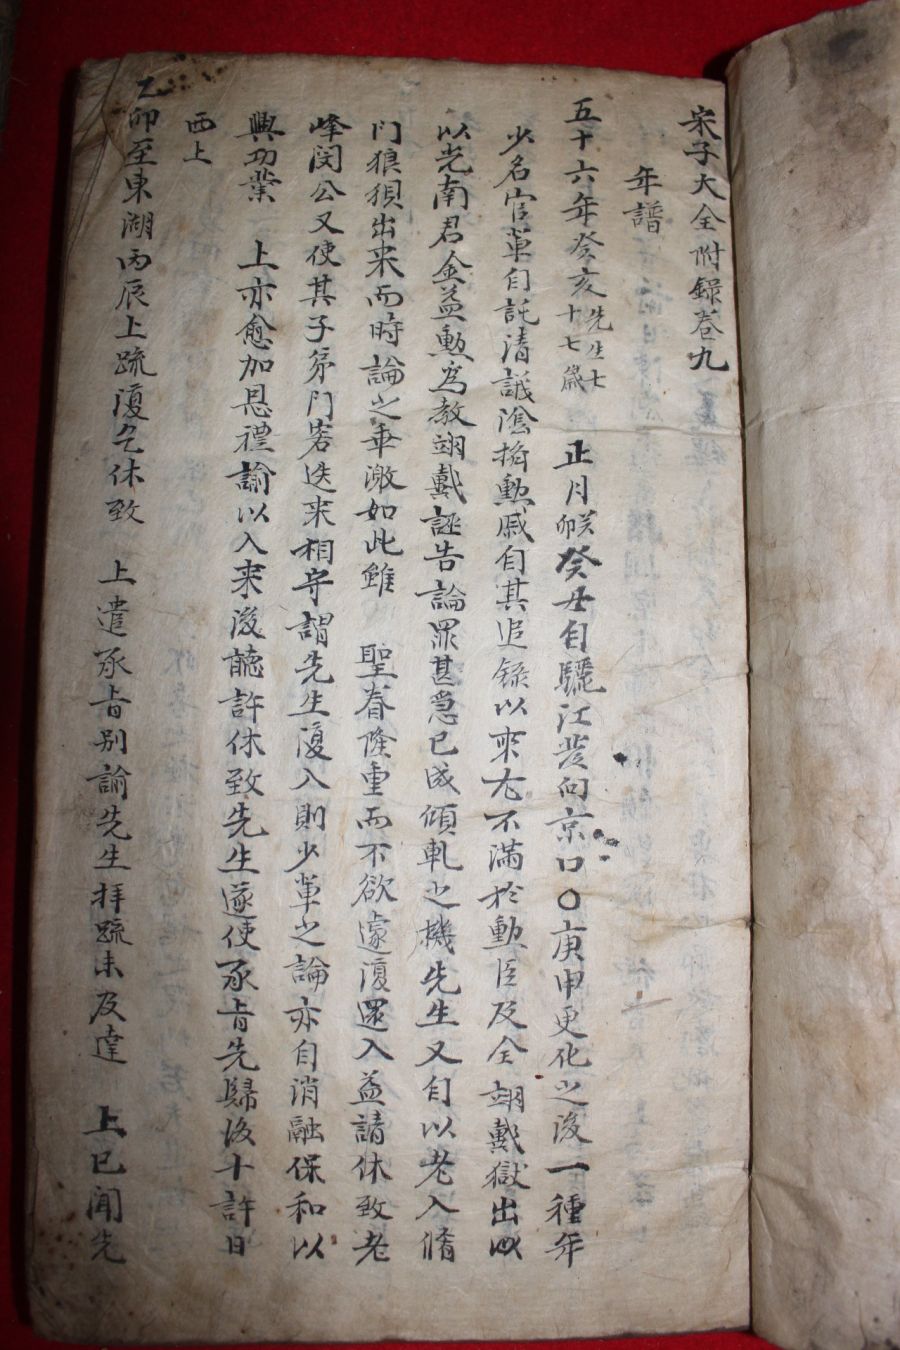 宋子大全附錄卷九
年譜
五十六年癸亥先生七十七歲 正月癸卯朔癸丑自驪江發向京口○庚申更化之後一種年
少名官輩自託淸議陰掎勳戚自其追錄以來尤不滿於勳臣及全翊戴獄出以
以光南君金益勳爲教翊戴誣告論罪甚急已成傾軋之機先生又自以老入脩
門狼狽出來而時論之乖激如此雖 聖眷隆重而不欲遽復還入益請休致老
峰閔公又使其子弟門客迭來相守謂先生復入則少輩之論亦自消融保和以
興功業 上亦愈加恩禮諭以入來後聽許休致先生遂使承旨先歸後十許日
西上
乙卯至東湖丙辰上疏復乞休致 上遣承旨別諭先生拜疏未及達 上已聞先